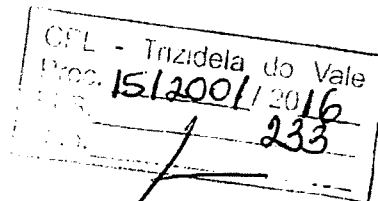 CPL - Trizidela do Vale
Proc. 1512001/2016
233